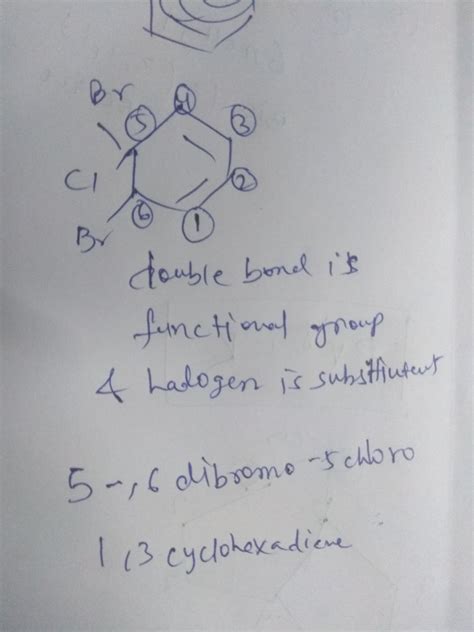 Br
④
⑤
③
Cl
②
⑥
Br
①
double bond is
functional group
& halogen is substituent
5-,6 dibromo-5 chloro
1,3 cyclohexadiene